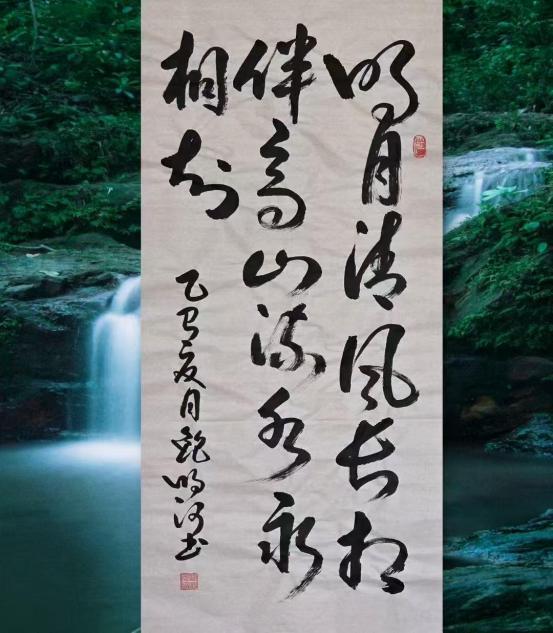 明月清风长相
伴高山流水永
相知
乙巳夏月鲍明河书